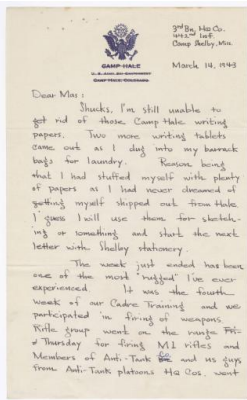 3rd Bn, Hq Co.
442nd Inf.
Camp Shelby, Miss
CAMP HALE
CAMP HALE, COLORADO
March 14, 1943
Dear Mas:
Shucks, I'm still unable to
get rid of those Camp Hale writing
papers. Two more writing tablets
came out as I dug into my barrack
bags for laundry. Reason being
that I had stuffed myself with plenty
of papers as I had never dreamed of
getting myself shipped out from Hale
I guess I will use them for sketch-
ing or something and start the next
letter with Shelby stationery.
The week just ended has been
one of the most "rugged" I've ever
experienced. It was the fourth
week of our Cadre Training and we
participated in firing of weapons.
Rifle group went on the range Fri-
& Thursday for firing M1 rifles and
Members of Anti-Tank Co and us guys
from Anti-Tank platoons Hq Cos. went